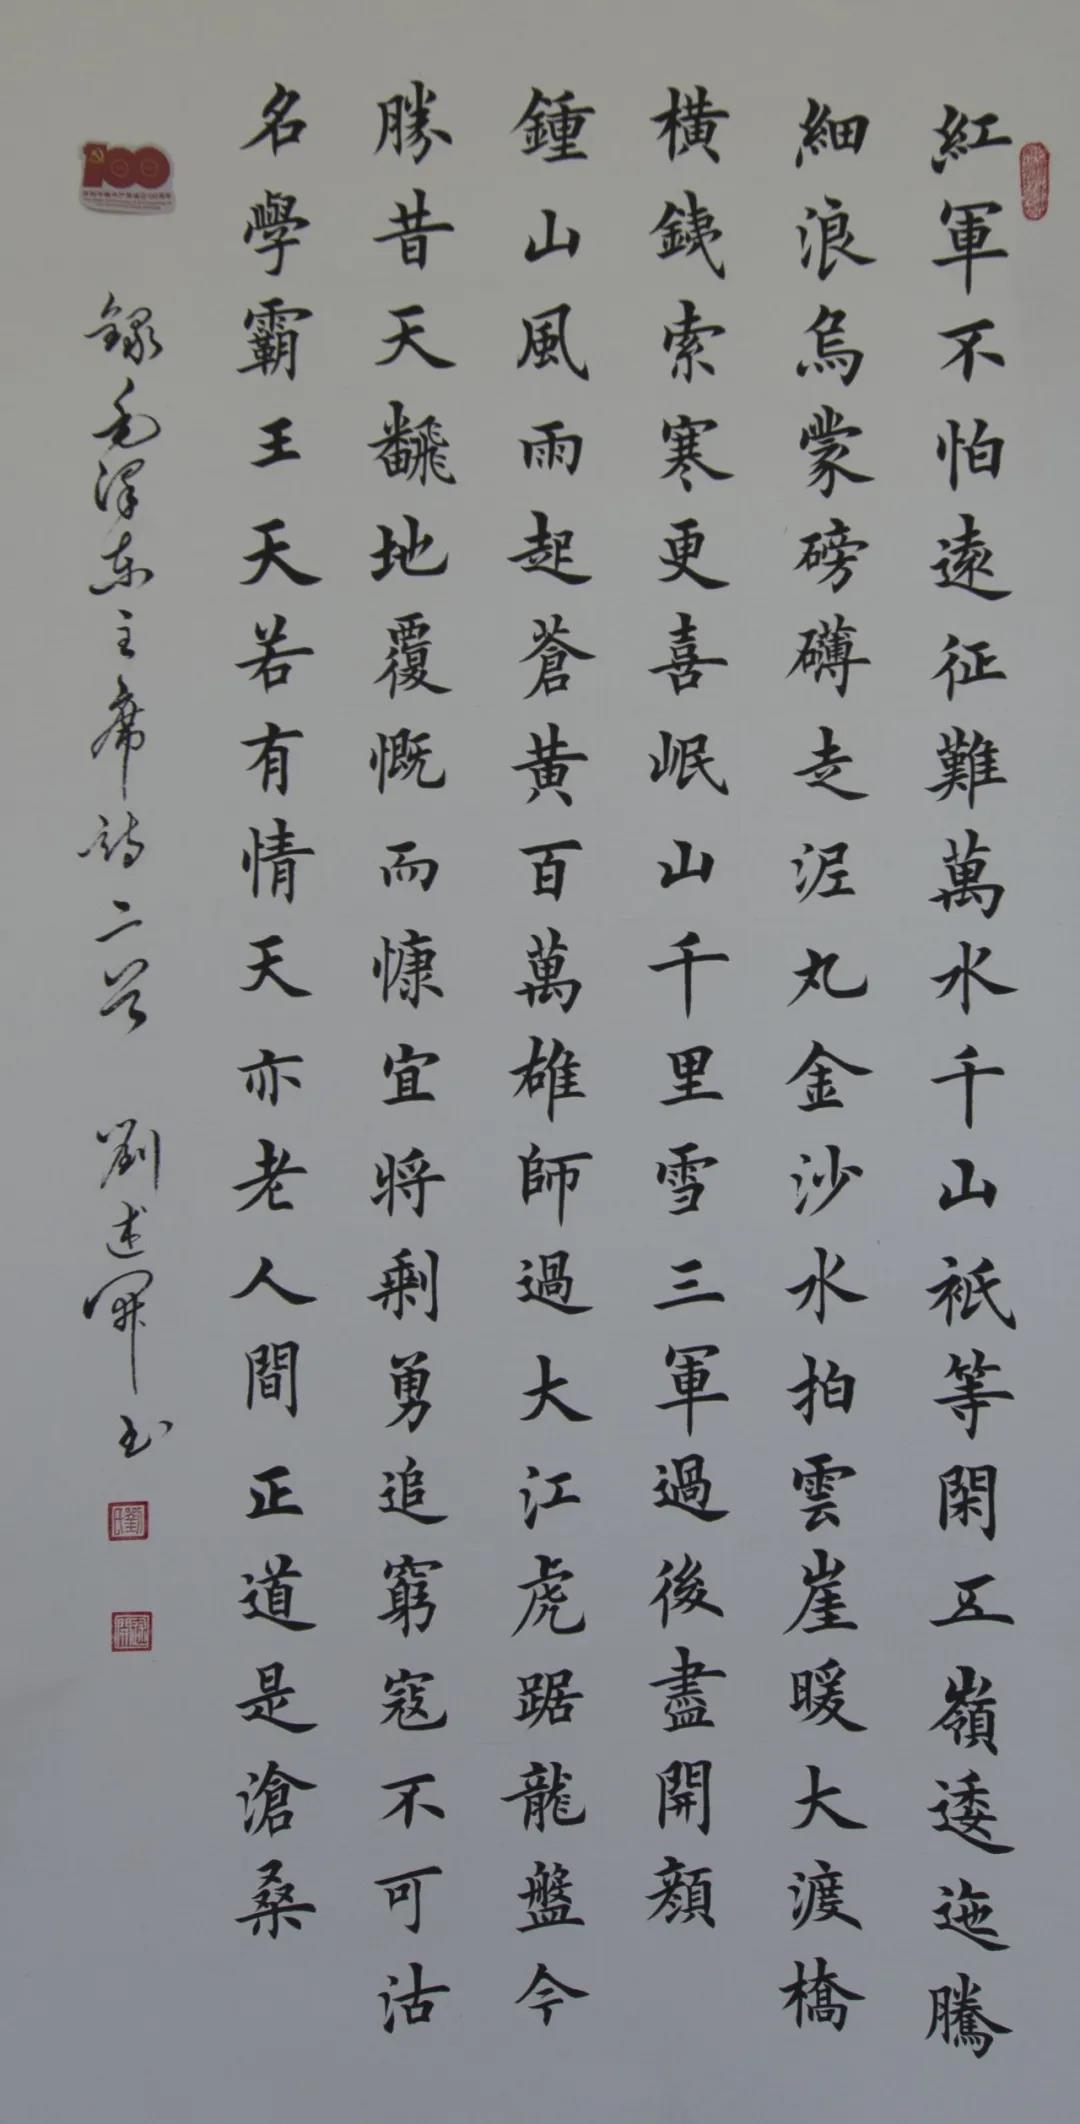 紅軍不怕遠征難萬水千山祇等閑五嶺逶迤騰
細浪烏蒙磅礴走泥丸金沙水拍雲崖暖大渡橋
橫銕索寒更喜岷山千里雪三軍過後盡開顏
鍾山風雨起蒼黃百萬雄師過大江虎踞龍盤今
勝昔天飜地覆慨而慷宜將剩勇追窮寇不可沽
名學霸王天若有情天亦老人間正道是滄桑
100
錄毛澤東主席詩二首 劉述開书